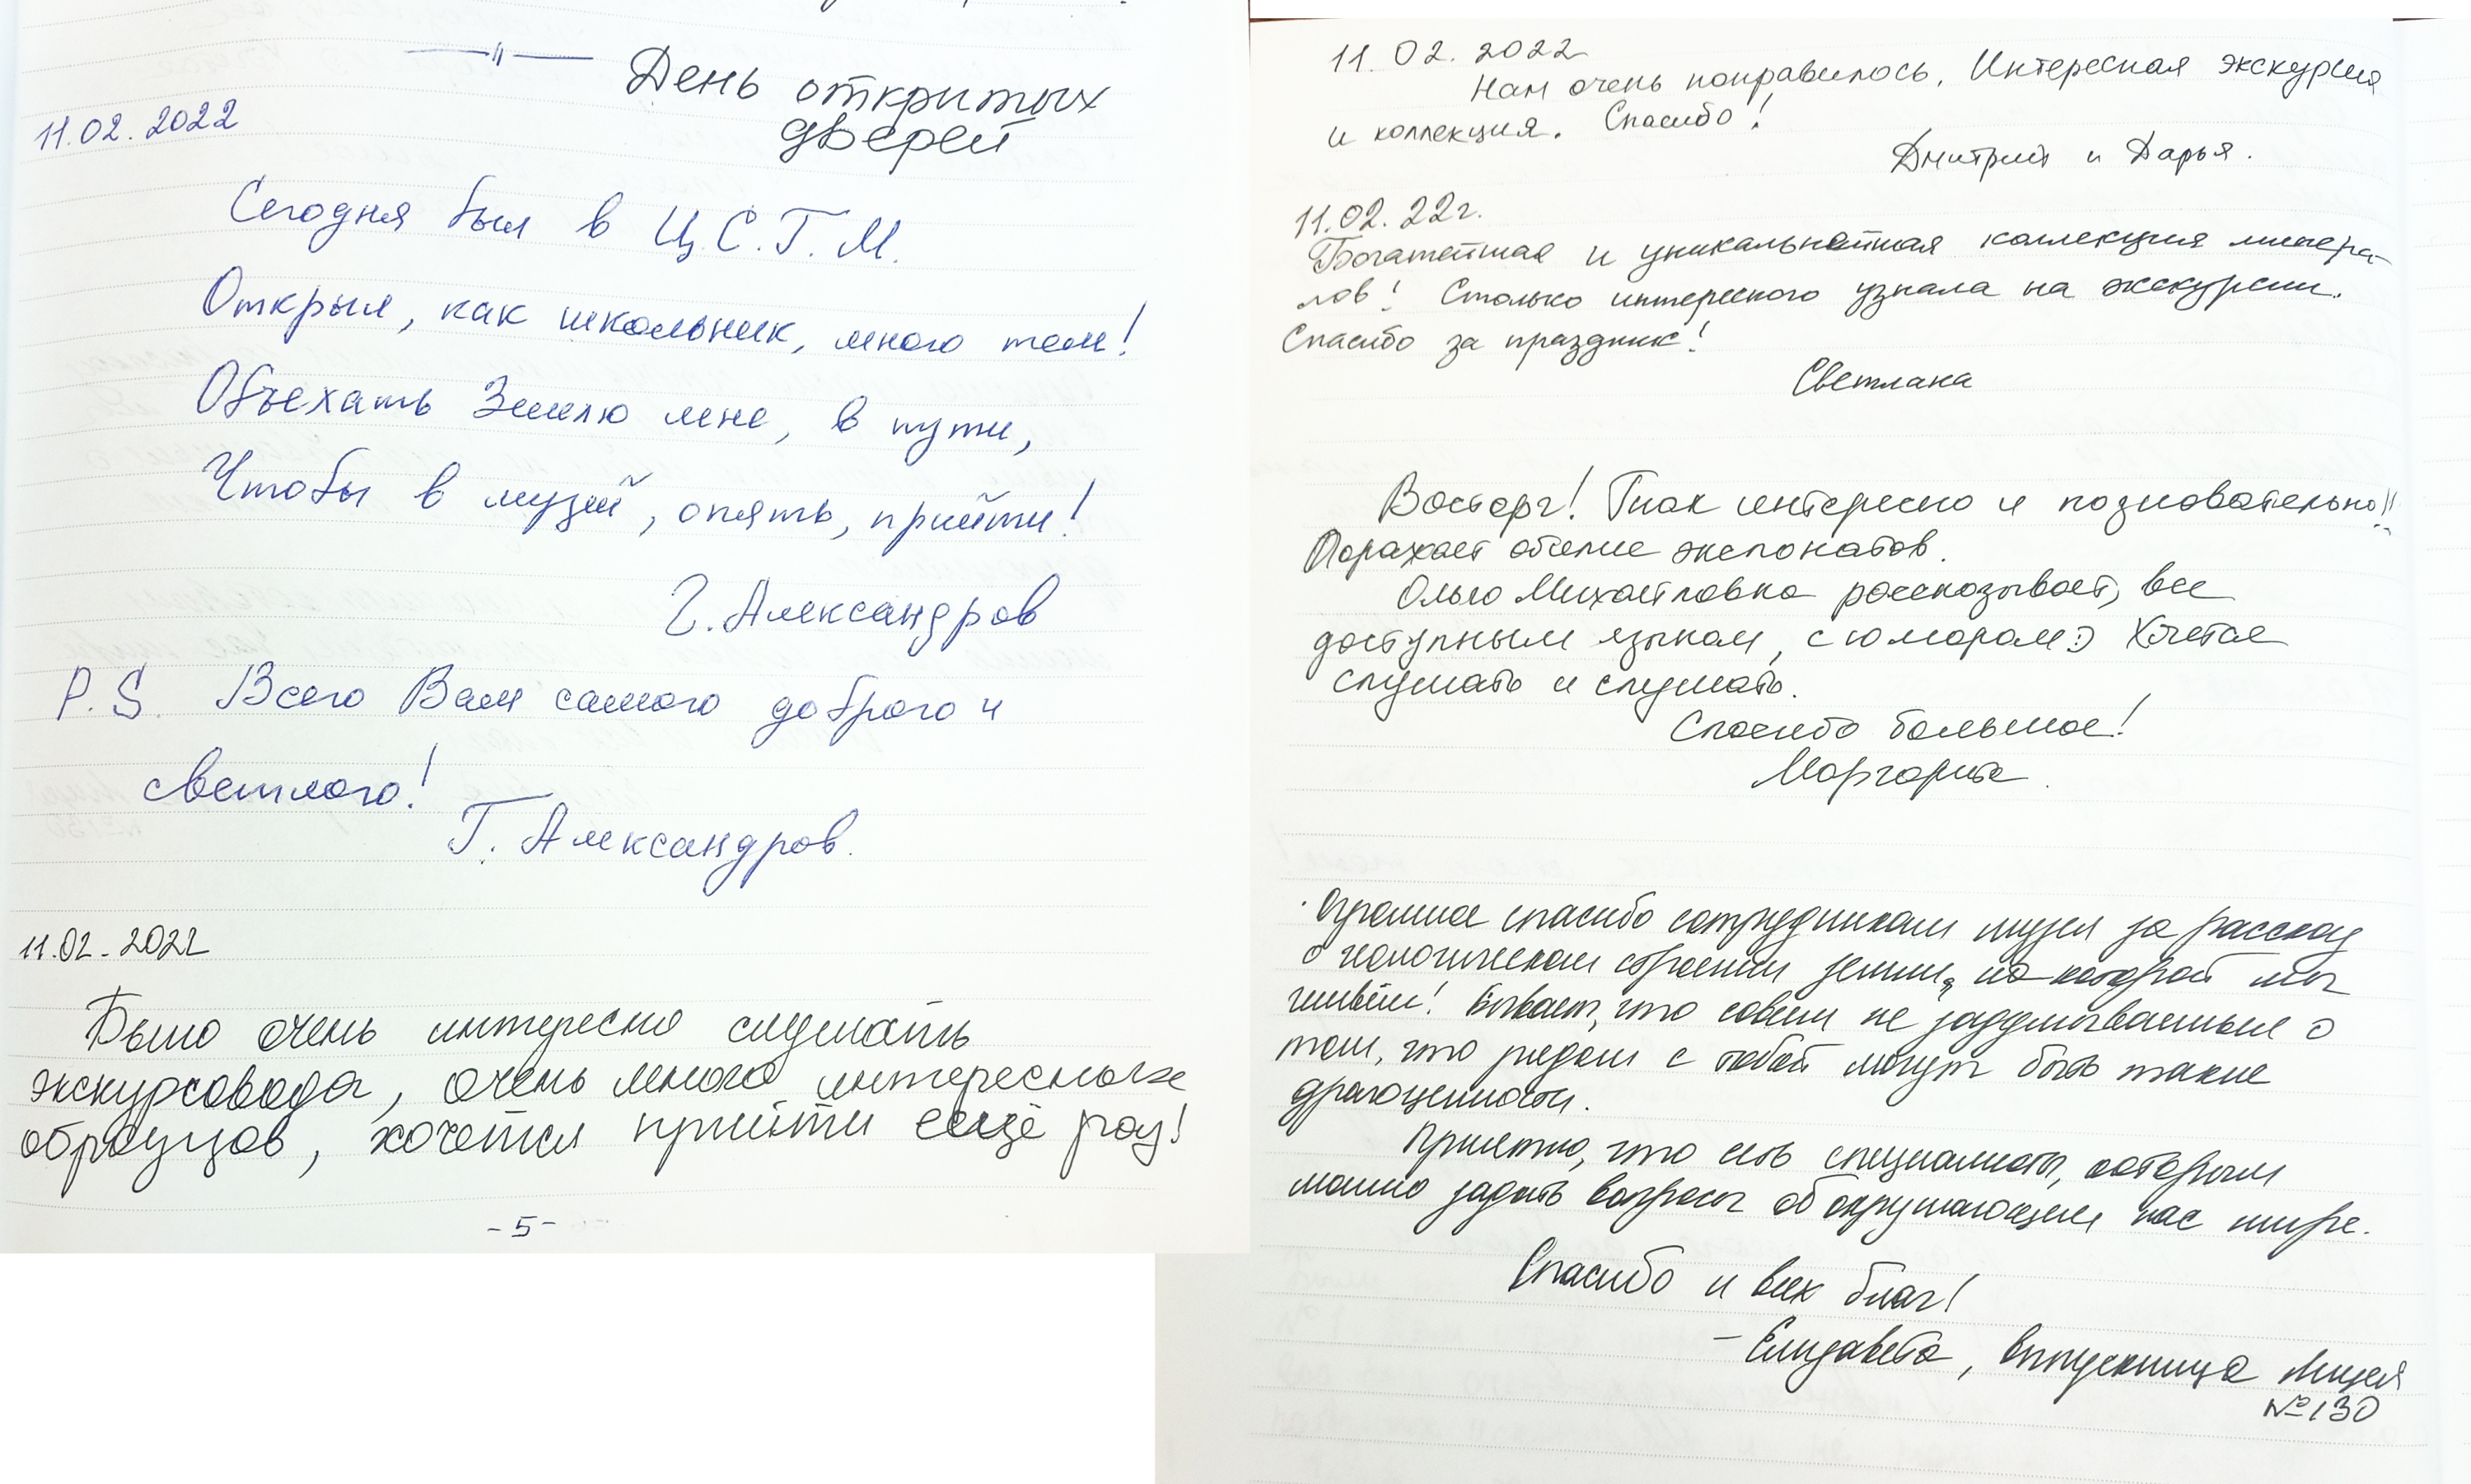 —"—
День открытых
дверей
11.02.2022
Сегодня был в Ц.С.Г.М.
Открыл, как школьник, много тем!
Объехать Землю мне, в пути,
Чтобы в музей, опять, прийти!
Г. Александров
P.S. Всего Вам самого доброго и
светлого!
Г. Александров.
11.02.2022
Было очень интересно слушать
экскурсовода, очень много интересных
образцов, хочется прийти ещё раз!
-5-
11.02.2022
Нам очень понравилось. Интересная экскурсия
и коллекция. Спасибо!
Дмитрий и Дарья.
11.02.22г.
Богатейшая и уникальнейшая коллекция минера-
лов! Столько интересного узнала на экскурсии.
Спасибо за праздник!
Светлана
Восторг! Так интересно и позновательно!!
Поражает обилие экспонатов.
Ольга Михайловна рассказывает, все
доступным языком, с юмором :) Хочется
слушать и слушать.
Спасибо большое!
Маргарита.
Огромное спасибо сотрудникам музея за рассказ
о геологическом строении земли, на которой мы
живём! Бывает, что совсем не задумываешься о
том, что рядом с тобой могут быть такие
драгоценности.
Приятно, что есть специалисты, которым
можно задать вопросы об окружающем нас мире.
Спасибо и всех благ!
– Елизавета, выпускница Лицея
№130